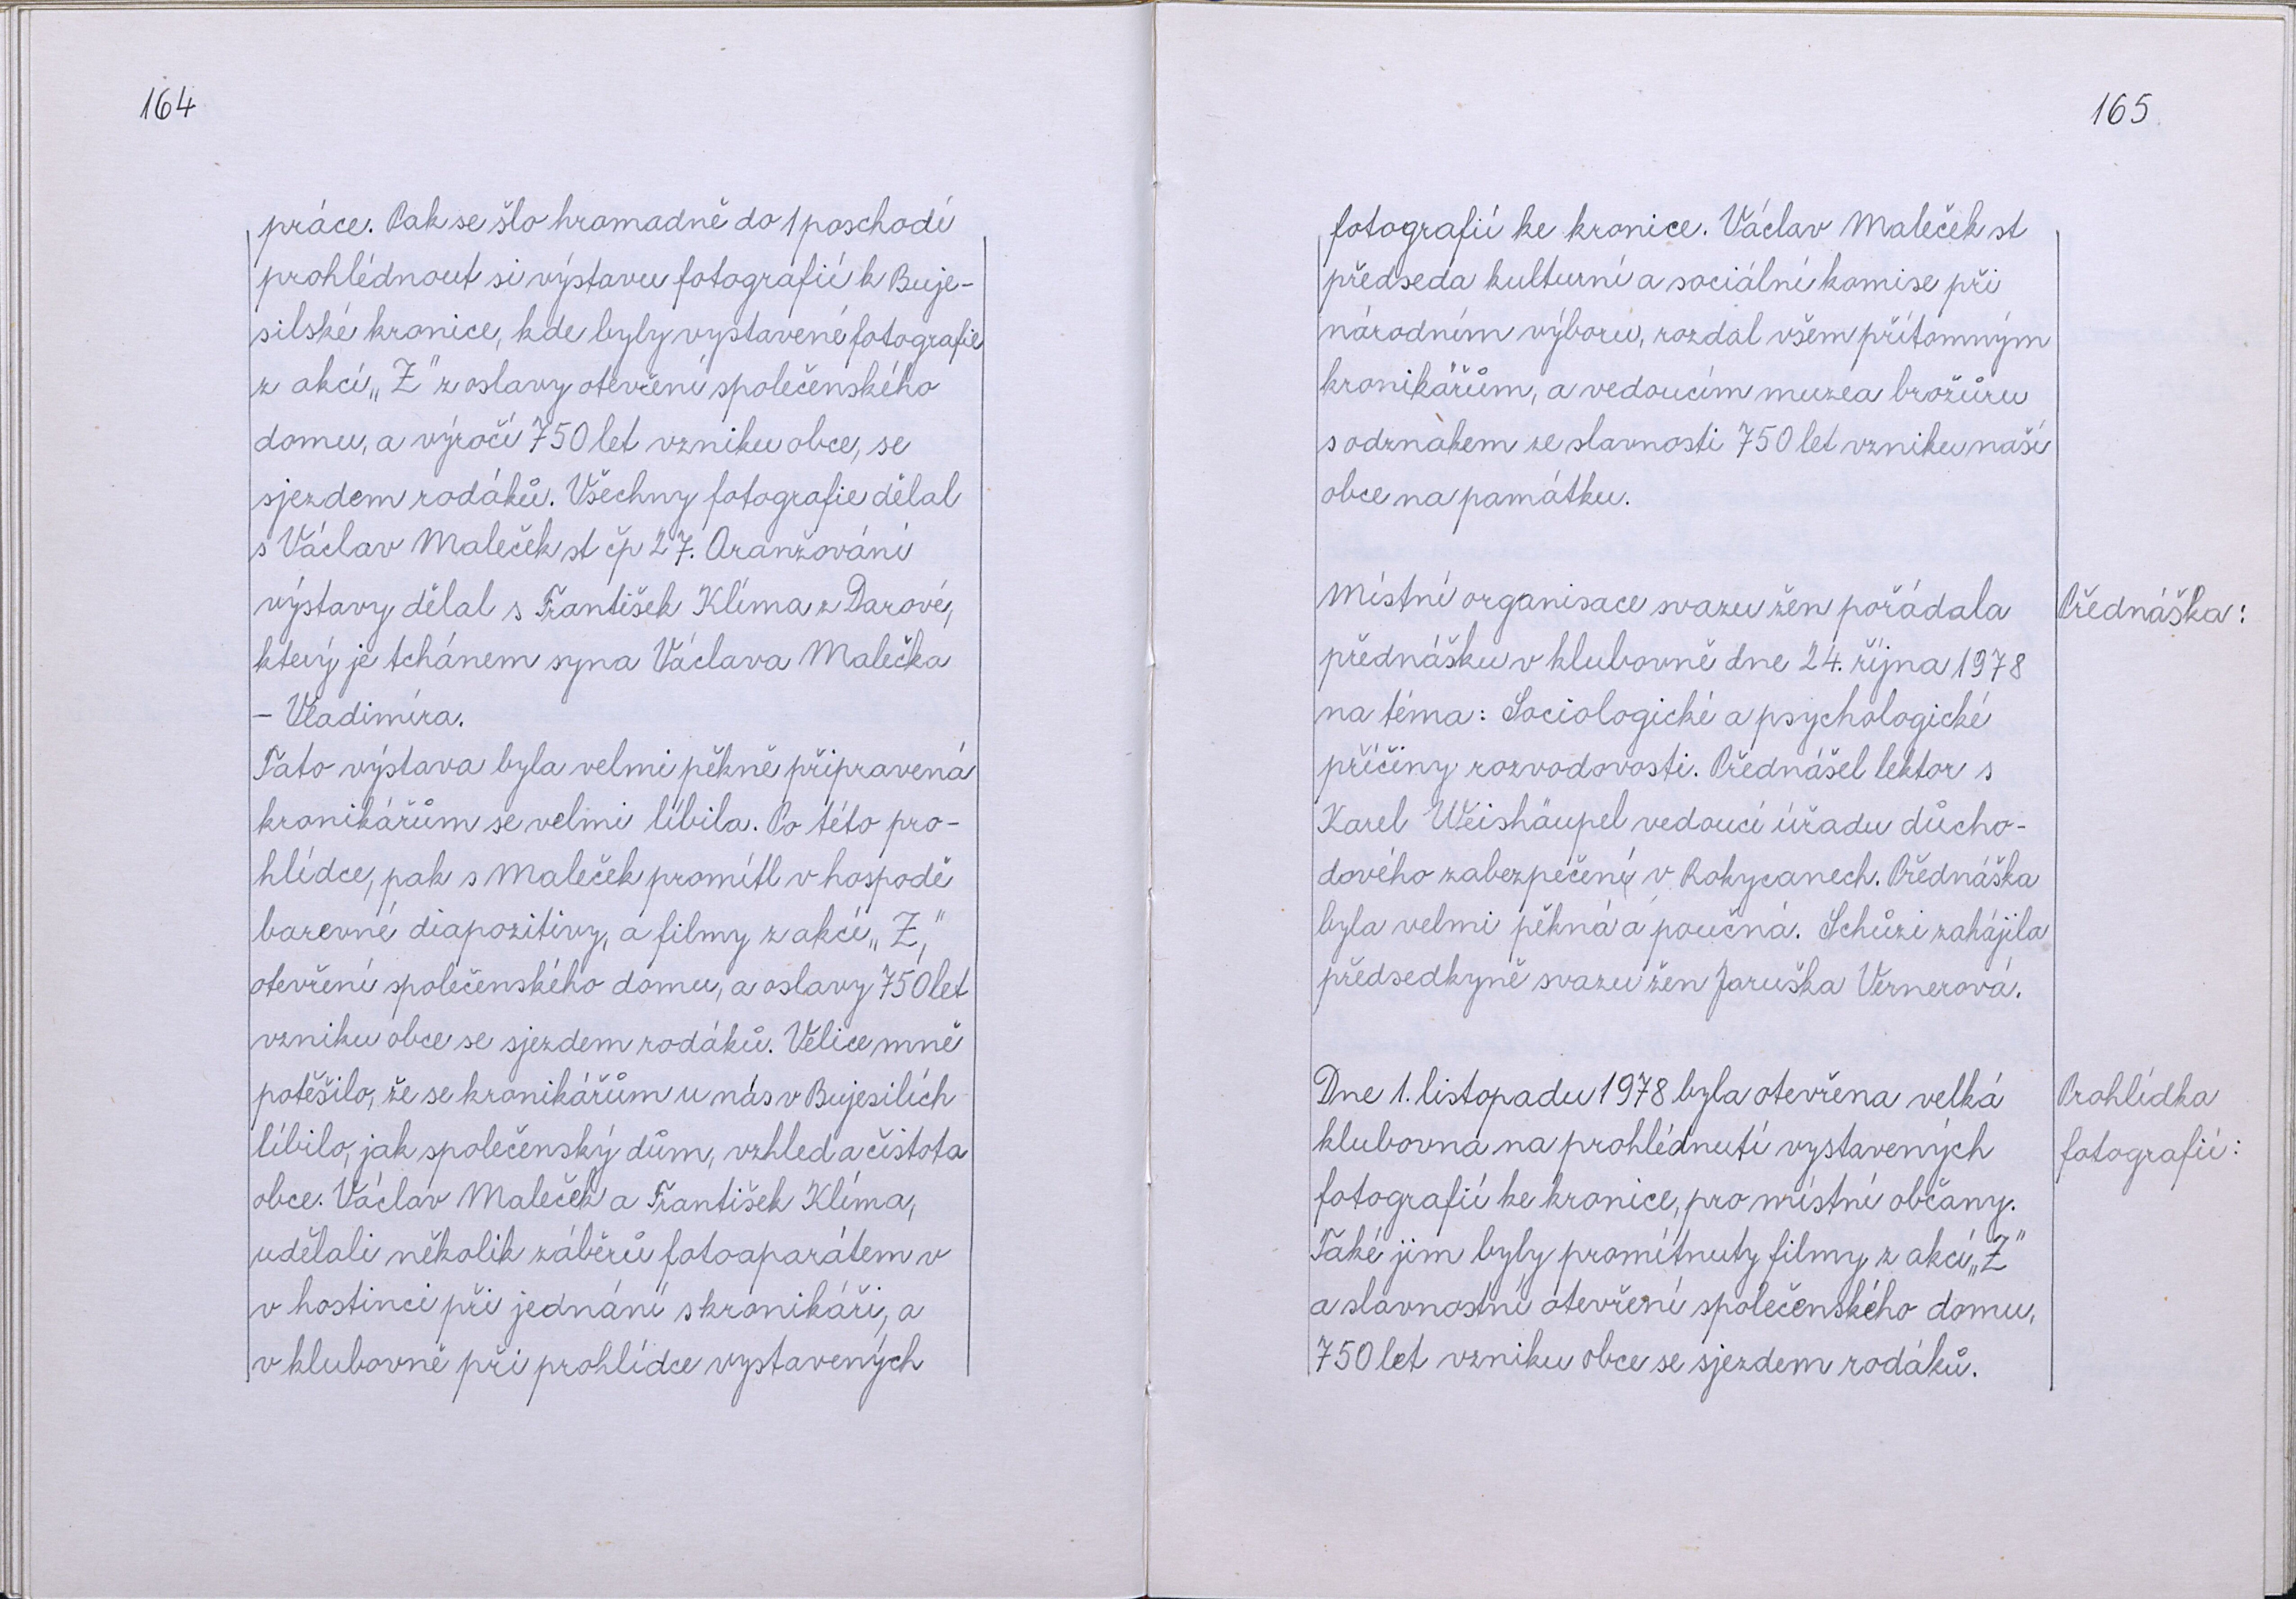 164
práce. Pak se šlo hromadně do 1 poschodí
prohlédnout si výstavu fotografií k Buje-
silské kronice, kde byly vystavené fotografie
z akcí „Z" z oslavy otevření společenského
domu, a výročí 750 let vzniku obce, se
sjezdem rodáků. Všechny fotografie dělal
s Václav Maleček st čp 27. Aranžování
výstavy dělal s František Klíma z Darové,
který je tchánem syna Václava Malečka
- Vladimíra.
Tato výstava byla velmi pěkně připravená
kronikářům se velmi líbila. Po této pro-
hlídce, pak s Maleček promítl v hospodě
barevné diapozitivy, a filmy z akcí „Z,"
otevření společenského domu, a oslavy 750 let
vzniku obce se sjezdem rodáků. Velice mně
potěšilo, že se kronikářům u nás v Bujesilích
líbilo, jak společenský dům, vzhled a čistota
obce. Václav Maleček a František Klíma,
udělali několik záběrů fotoaparátem v
v hostinci při jednání s kronikáři, a
v klubovně při prohlídce vystavených
165
fotografií ke kronice. Václav Maleček st
předseda kulturní a sociální komise při
národním výboru, rozdal všem přítomným
kronikářům, a vedoucím muzea brožůru
s odznakem ze slavnosti 750 let vzniku naší
obce na památku.
Místní organisace svazu žen pořádala
Přednáška:
přednášku v klubovně dne 24. října 1978
na téma: Sociologické a psychologické
příčiny rozvodovosti. Přednášel lektor s
Karel Weishäupel vedoucí úřadu důcho-
dového zabezpečení v Rokycanech. Přednáška
byla velmi pěkná a poučná. Schůzi zahájila
předsedkyně svazu žen Jaruška Vernerová.
Dne 1. listopadu 1978 byla otevřena velká
Prohlídka
klubovna na prohlédnutí vystavených
fotografií:
fotografií ke kronice, pro místní občany.
Také jim byly promítnuty filmy z akcí „Z"
a slavnostní otevření společenského domu,
750 let vzniku obce se sjezdem rodáků.